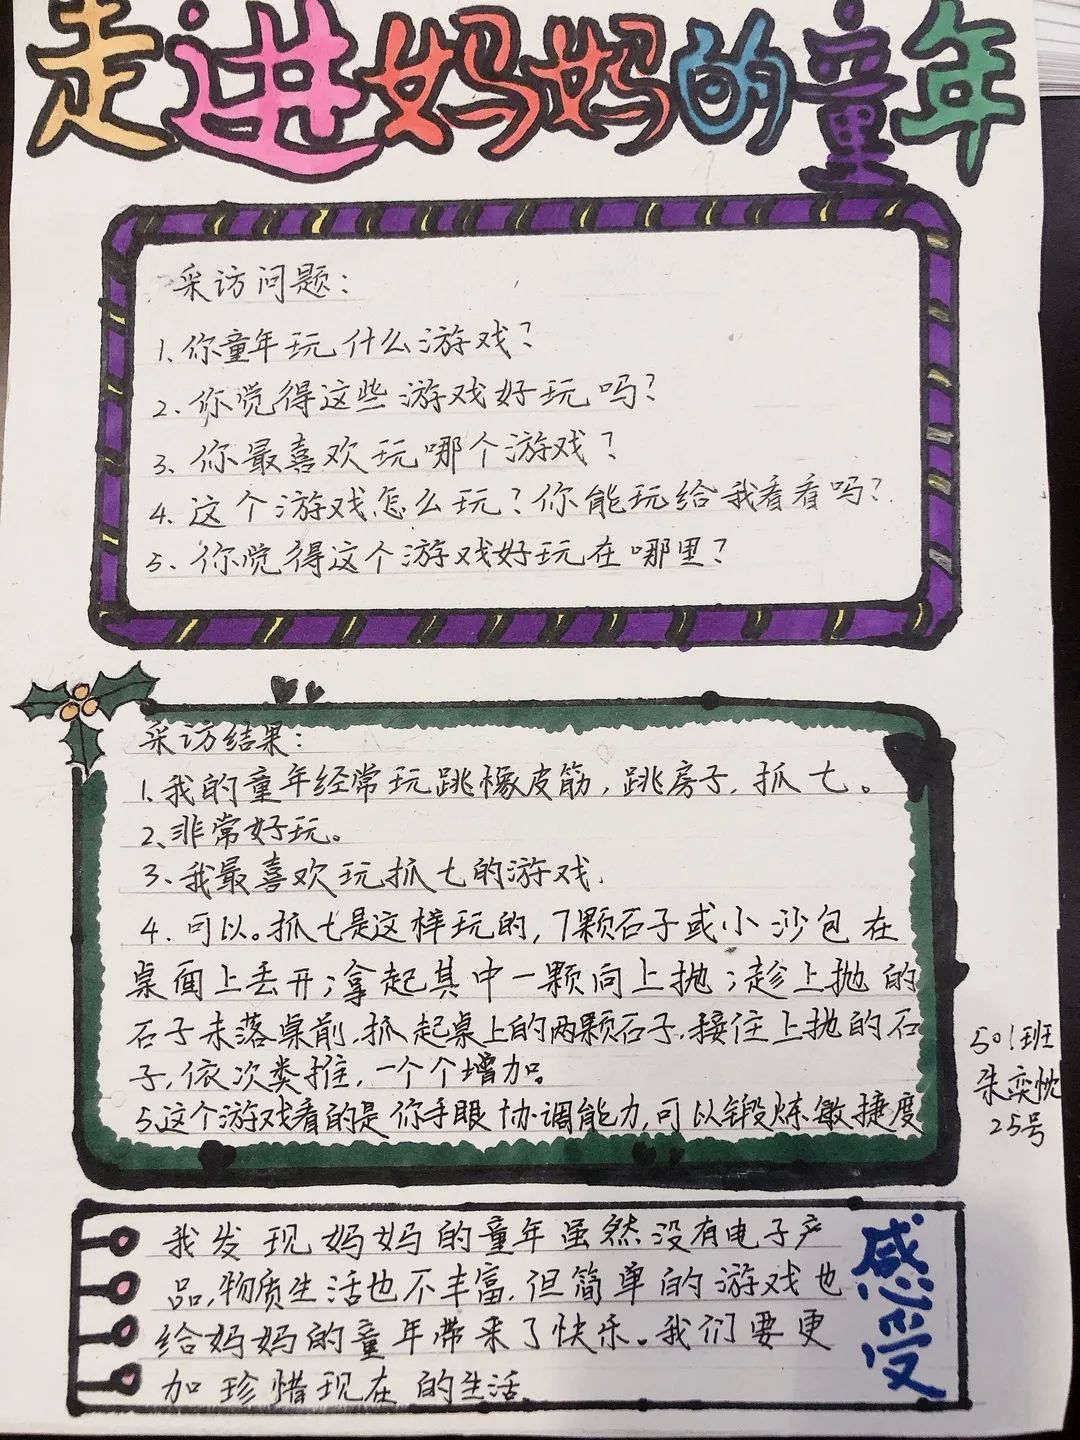 走进妈妈的童年
采访问题：
1、你童年玩什么游戏？
2、你觉得这些游戏好玩吗？
3、你最喜欢玩哪个游戏？
4、这个游戏怎么玩？你能玩给我看看吗？
5、你觉得这个游戏好玩在哪里？
采访结果：
1、我的童年经常玩跳橡皮筋，跳房子，抓七。
2、非常好玩。
3、我最喜欢玩抓七的游戏.
4、可以。抓七是这样玩的，7颗石子或小沙包在
桌面上丢开；拿起其中一颗向上抛；趁上抛的
石子未落桌前，抓起桌上的两颗石子，接住上抛的石
子，依次类推，一个个增加。
5、这个游戏看的是你手眼协调能力，可以锻炼敏捷度
501班
朱奕忱
25号
我发现妈妈的童年虽然没有电子产
品，物质生活也不丰富，但简单的游戏也
给妈妈的童年带来了快乐。我们要更
加珍惜现在的生活
感受